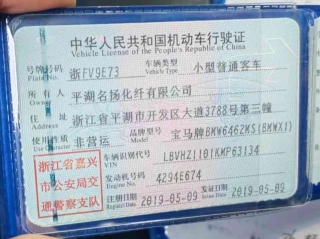 中华人民共和国机动车行驶证
Vehicle License of the People's Republic of China
号牌号码 浙FV9E73 车辆类型 小型普通客车
Plate No. Vehicle Type
所有人 平湖名扬化纤有限公司
Owner
住址 浙江省平湖市开发区大道3788号第三幢
Address
使用性质 非营运 品牌型号 宝马牌BMW6462MS(BMWX1)
Use Character Model
浙江省嘉兴 车辆识别代号 LBVHZ1101KMP63134
VIN
市公安局交 发动机号码 4294E674
Engine No.
通警察支队 注册日期 2019-05-09 发证日期 2019-05-09
Register Date Issue Date